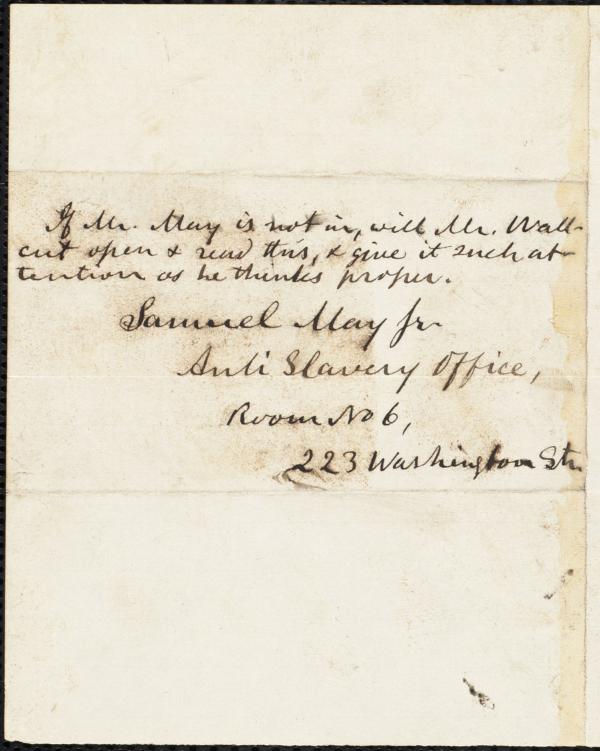 If Mr. May is not in, will Mr. Wall-
cut open & read this, & give it such at-
tention as he thinks proper.
Samuel May Jr.
Anti Slavery Office,
Room No 6,
223 Washington Str.